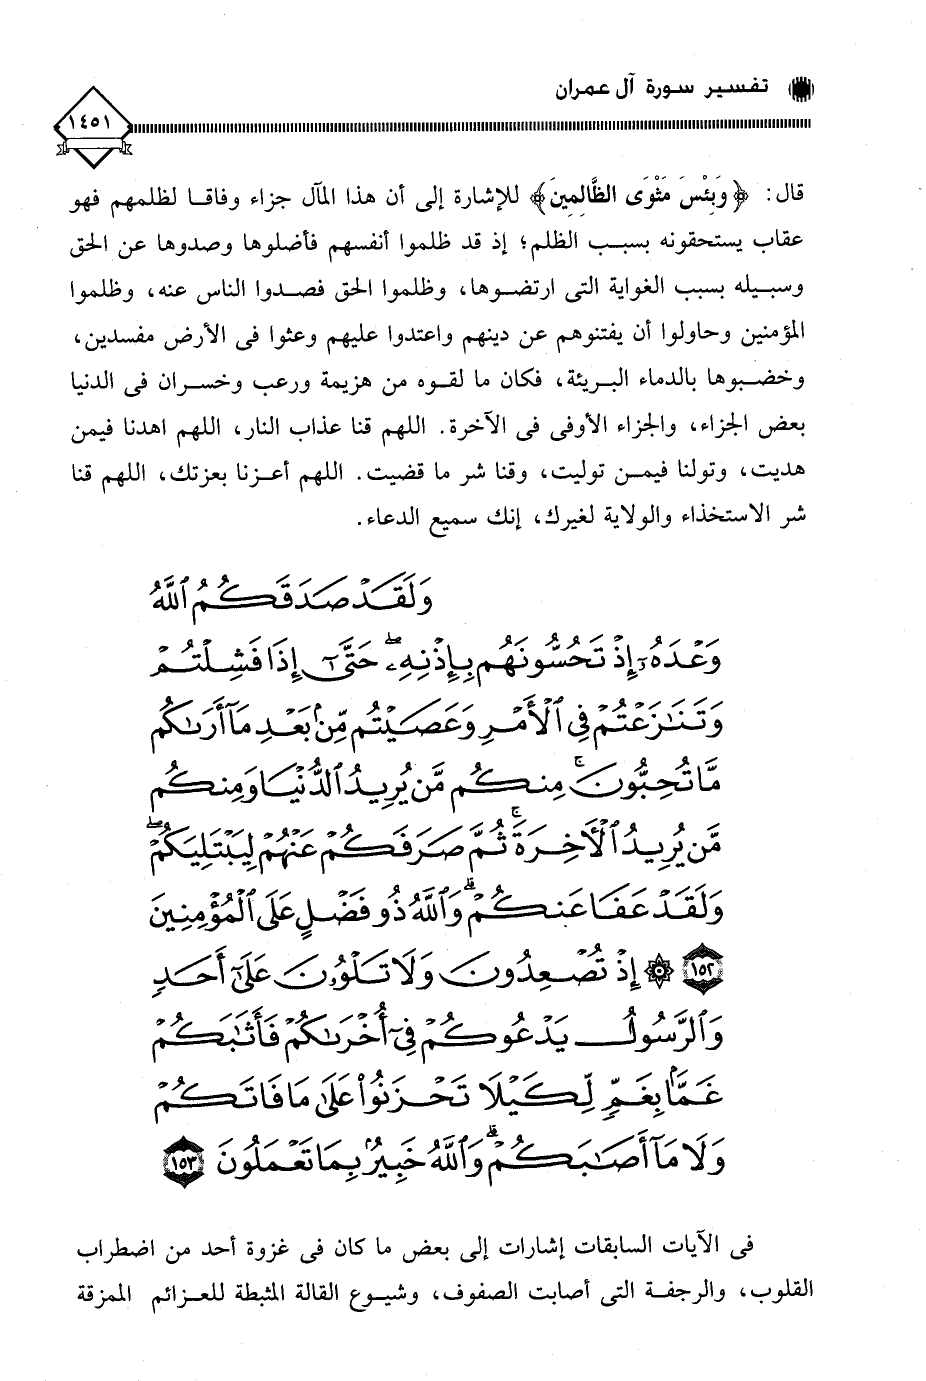 تفسير سورة آل عمران
١٤٥١
قال: ﴿وَبِئْسَ مَثْوَى الظَّالِمِينَ﴾ للإشارة إلى أن هذا المآل جزاء وفاقا لظلمهم فهو
عقاب يستحقونه بسبب الظلم؛ إذ قد ظلموا أنفسهم فأضلوها وصدوها عن الحق
وسبيله بسبب الغواية التى ارتضوها، وظلموا الحق فصدوا الناس عنه، وظلموا
المؤمنين وحاولوا أن يفتنوهم عن دينهم واعتدوا عليهم وعثوا فى الأرض مفسدين،
وخضبوها بالدماء البريئة، فكان ما لقوه من هزيمة ورعب وخسران فى الدنيا
بعض الجزاء، والجزاء الأوفى فى الآخرة. اللهم قنا عذاب النار، اللهم اهدنا فيمن
هديت، وتولنا فيمن توليت، وقنا شر ما قضيت. اللهم أعزنا بعزتك، اللهم قنا
شر الاستخذاء والولاية لغيرك، إنك سميع الدعاء.
وَلَقَدْ صَدَقَكُمُ ٱللَّهُ
وَعْدَهُۥٓ إِذْ تَحُسُّونَهُم بِإِذْنِهِۦ ۖ حَتَّىٰٓ إِذَا فَشِلْتُمْ
وَتَنَٰزَعْتُمْ فِى ٱلْأَمْرِ وَعَصَيْتُم مِّنۢ بَعْدِ مَآ أَرَىٰكُم
مَّا تُحِبُّونَ ۚ مِنكُم مَّن يُرِيدُ ٱلدُّنْيَا وَمِنكُم
مَّن يُرِيدُ ٱلْأَخِرَةَ ۚ ثُمَّ صَرَفَكُمْ عَنْهُمْ لِيَبْتَلِيَكُمْ ۖ
وَلَقَدْ عَفَا عَنكُمْ ۗ وَٱللَّهُ ذُو فَضْلٍ عَلَى ٱلْمُؤْمِنِينَ
١٥٢ ۞ إِذْ تُصْعِدُونَ وَلَا تَلْوُۥنَ عَلَىٰٓ أَحَدٍ
وَٱلرَّسُولُ يَدْعُوكُمْ فِىٓ أُخْرَىٰكُمْ فَأَثَٰبَكُمْ
غَمًّۢا بِغَمٍّ لِّكَيْلَا تَحْزَنُوا۟ عَلَىٰ مَا فَاتَكُمْ
وَلَا مَآ أَصَٰبَكُمْ ۗ وَٱللَّهُ خَبِيرٌۢ بِمَا تَعْمَلُونَ ١٥٣
فى الآيات السابقات إشارات إلى بعض ما كان فى غزوة أحد من اضطراب
القلوب، والرجفة التى أصابت الصفوف، وشيوع القالة المثبطة للعزائم الممزقة